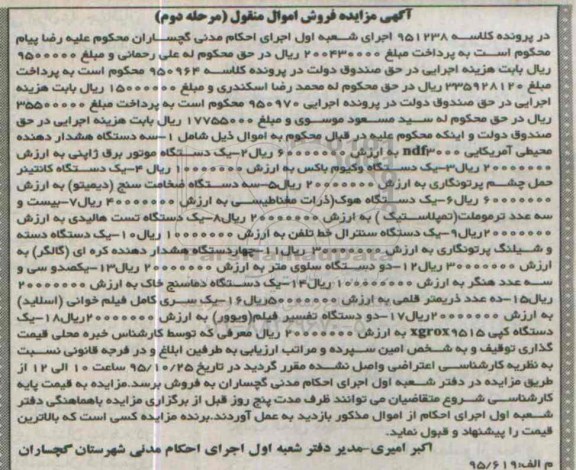 آگهی مزایده فروش اموال منقول (مرحله دوم)
در پرونده کلاسه ۹۵۱۲۳۸ اجرای شعبه اول اجرای احکام مدنی گچساران محکوم علیه رضا پیام
محکوم است به پرداخت مبلغ ۲۰۰۴۳۰۰۰۰ ریال در حق محکوم له علی رحمانی و مبلغ ۹۵۰۰۰۰۰
ریال بابت هزینه اجرایی در حق صندوق دولت در پرونده کلاسه ۹۵۰۹۶۴ محکوم است به پرداخت
مبلغ ۳۳۵۹۲۸۱۲۰ ریال در حق محکوم له محمد رضا اسکندری و مبلغ ۱۵۰۰۰۰۰۰ ریال بابت هزینه
اجرایی در حق صندوق دولت در پرونده اجرایی ۹۵۰۹۷۰ محکوم است به پرداخت مبلغ ۳۵۵۰۰۰۰۰۰
ریال در حق محکوم له سید مسعود موسوی و مبلغ ۱۷۷۵۵۰۰۰ ریال بابت هزینه اجرایی در حق
صندوق دولت و اینکه محکوم علیه در قبال محکوم به اموال ذیل شامل ۱-سه دستگاه هشدار دهنده
محیطی آمریکایی ndf۳۰۰۰ به ارزش ریال۲-یک دستگاه موتور برق ژاپنی به ارزش
ریال۳-یک دستگاه وکیوم باکس به ارزش ریال ۴-یک دستگاه کانتینر
حمل چشم پرتونگاری به ارزش ریال۵-سه دستگاه ضخامت سنج (دیمیتو) به ارزش
ریال۶-یک دستگاه هوک(ذرات مغناطیسی به ارزش ریال۷-بیست و
سه عدد ترموملت(تمپلاستیک) به ارزش ریال۸-یک دستگاه تست هالیدی به ارزش
ریال۹-یک دستگاه سنترال خط تلفن به ارزش ریال۱۰-یک دستگاه دسته
و شیلنگ پرتونگاری به ارزش ریال۱۱-چهاردستگاه هشدار دهنده کره ای (گالگر) به
ارزش ریال۱۲-دو دستگاه سلوی متر به ارزش ریال۱۳-یکصدو سی و
سه عدد هنگر به ارزش ریال۱۴-یک دستگاه دماسنج خاک به ارزش
ریال۱۵-ده عدد ذریمتر قلمی به ارزش ریال۱۶-یک سری کامل فیلم خوانی (اسلاید)
به ارزش ریال۱۷-دو دستگاه تفسیر فیلم(ویوور) به ارزش ریال۱۸-یک
دستگاه کپی xgrox۹۵۱۵ به ارزش ریال معرفی که توسط کارشناس خبره محلی قیمت
گذاری توقیف و به شخص امین سپرده و مراتب ارزیابی به طرفین ابلاغ و در فرجه قانونی نسبت
به نظریه کارشناسی اعتراضی واصل نشده مقرر گردید در تاریخ ۹۵/۱۰/۲۵ ساعت ۱۰ الی ۱۲ از
طریق مزایده در دفتر شعبه اول اجرای احکام مدنی گچساران به فروش برسد.مزایده به قیمت پایه
کارشناسی شروع متقاضیان می توانند ظرف مدت پنج روز قبل از برگزاری مزایده باهماهنگی دفتر
شعبه اول اجرای احکام از اموال مذکور بازدید به عمل آوردند.برنده مزایده کسی است که بالاترین
قیمت را پیشنهاد و قبول نماید.
اکبر امیری-مدیر دفتر شعبه اول اجرای احکام مدنی شهرستان گچساران
م الف:۹۵/۶۱۹